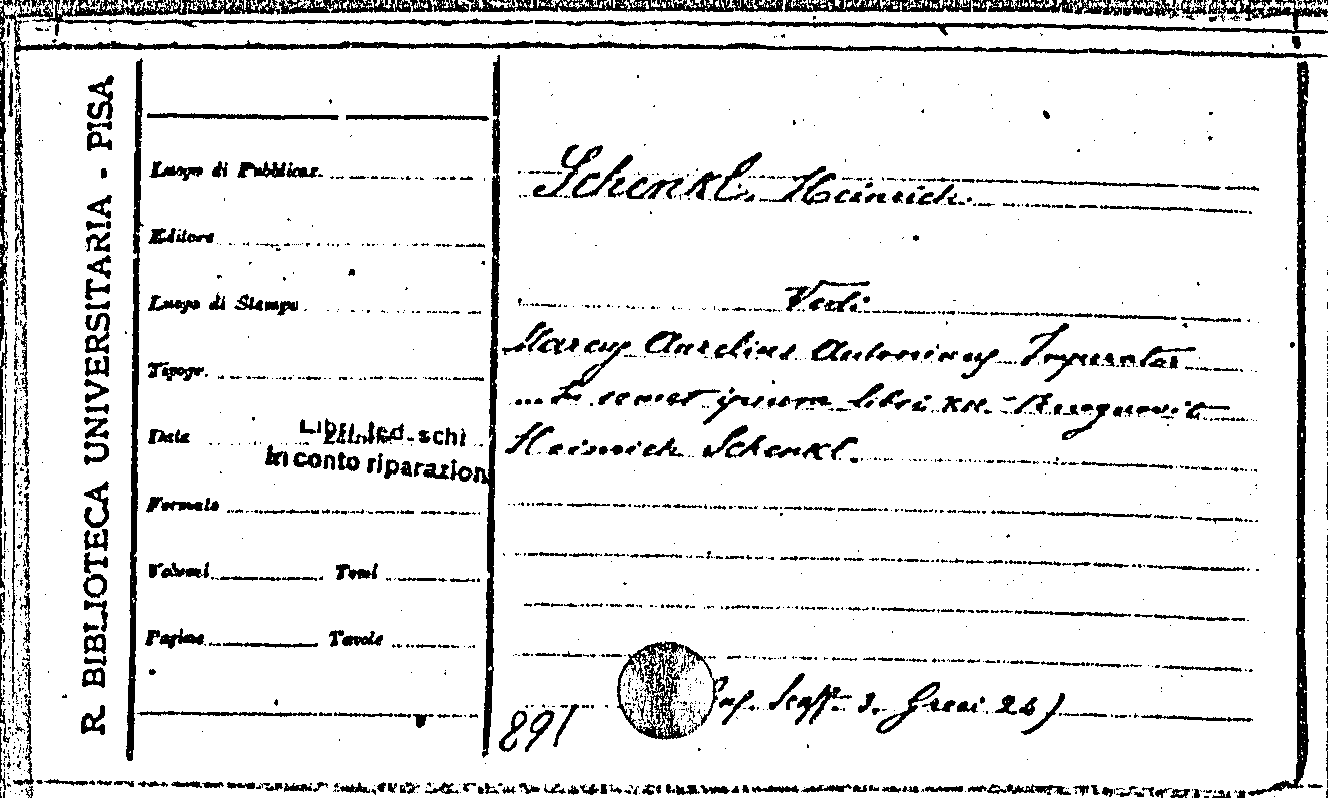 R. BIBLIOTECA UNIVERSITARIA - PISA
Luogo di Pubblicaz.
Editore
Luogo di Stampa
Tipogr.
Data
Libri ted-schi
in conto riparazion
Formato
Volumi Tomi
Pagine Tavole
Schenkl. Heinrich.
Vedi
Marcus Aurelius Antoninus Imperator
... In semet ipsum libri XII. Recognovit
Heinrich Schenkl.
Scaff. 3. Greci 26)
891